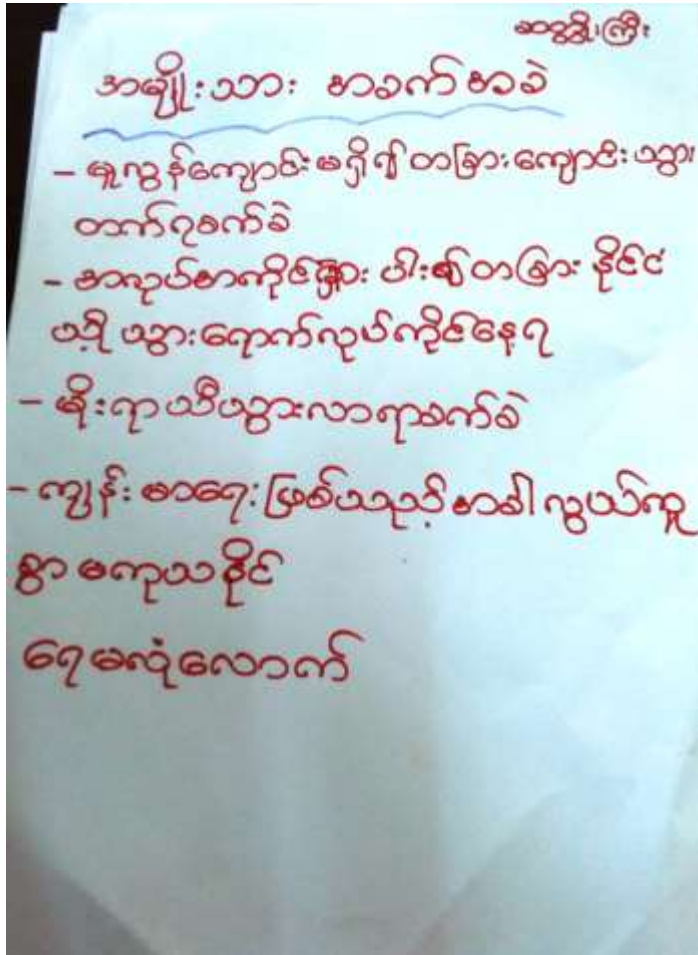 ဆတ္တီးကြီး
အမျိုးသား အခက်အခဲ
- မူလွန်ကျောင်းမရှိ၍တခြားကျောင်းသွား
တက်ရခက်ခဲ
- အလုပ်အကိုင်ရှားပါး၍တခြားနိုင်ငံ
သို့သွားရောက်လုပ်ကိုင်နေရ
- မိုးရာသီသွားလာရာခက်ခဲ
- ကျန်းမာရေးဖြစ်သည့်အခါလွယ်ကူ
စွာမကုသနိုင်
ရေမလုံလောက်